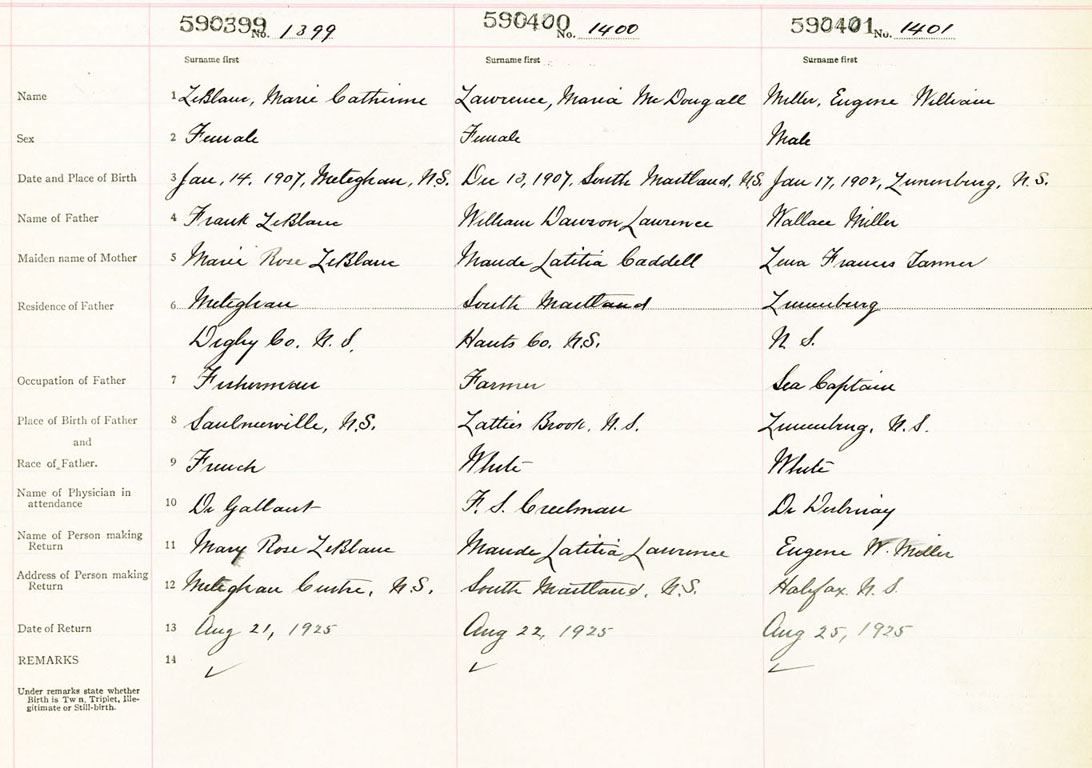 590399 No. 1399 590400 No. 1400 590401 No. 1401
Surname first Surname first Surname first
Name 1 LeBlanc, Marie Catherine Lawrence, Maria McDougall Miller, Eugene William
Sex 2 Female Female Male
Date and Place of Birth 3 Jan. 14. 1907, Meteghan, N.S. Dec 13, 1907, South Maitland, N.S. Jan 17, 1902, Lunenburg, N.S.
Name of Father 4 Frank LeBlanc William Dawson Lawrence Wallace Miller
Maiden name of Mother 5 Marie Rose LeBlanc Maude Latitia Caddell Lena Frances Tanner
Residence of Father 6 Meteghan South Maitland Lunenburg
Digby Co. N.S. Hants Co. N.S. N.S.
Occupation of Father 7 Fisherman Farmer Sea Captain
Place of Birth of Father 8 Saulnierville, N.S. Latties Brook, N.S. Lunenburg, N.S.
and
Race of Father. 9 French White White
Name of Physician in
attendance 10 Dr Gallant F. S. Creelman Dr
Name of Person making
Return 11 Mary Rose LeBlanc Maude Latitia Lawrence Eugene W. Miller
Address of Person making
Return 12 Meteghan Centre, N.S. South Maitland, N.S. Halifax. N.S.
Date of Return 13 Aug 21, 1925 Aug 22, 1925 Aug 25, 1925
REMARKS 14 ✓ ✓ ✓
Under remarks state whether
Birth is Tw n, Triplet, Ille-
gitimate or Still-birth.